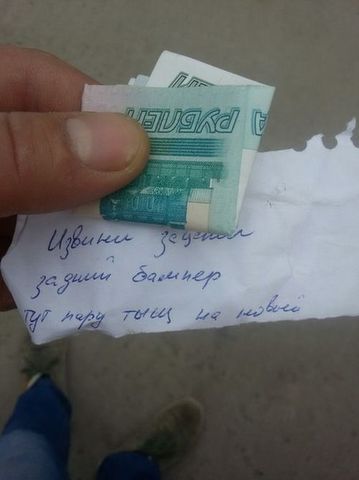 А РУБЛЕЙ
Извини зацепил
задний бампер
тут пару тыщ на новый